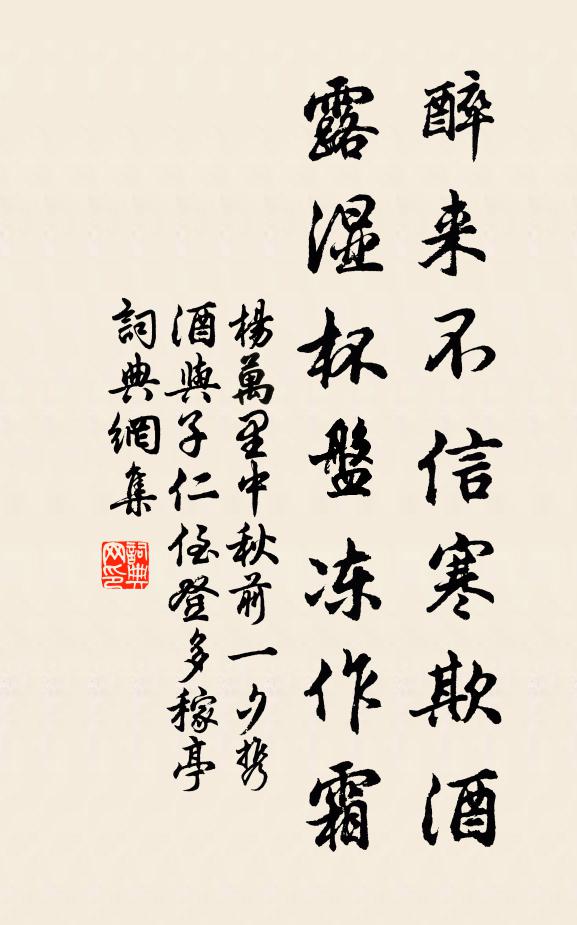 醉来不信寒欺酒
露湿杯盤冻作霜
楊萬里中秋前一夕携
酒與子仁侄登多稼亭
詞典網集
詞典
网印